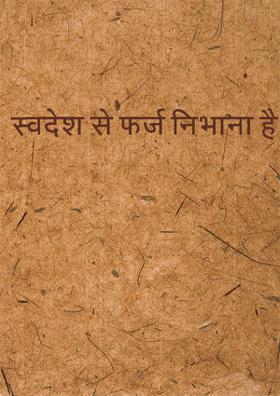 स्वदेश से फर्ज निभाना है